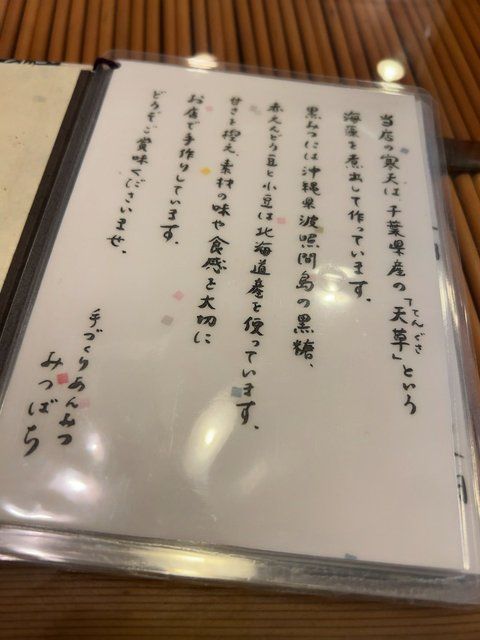 当店の寒天は、千葉県産の「天草」という
てんぐさ
海藻を煮出して作っています。
黒みつには沖縄県波照間島の黒糖、
赤えんどう豆と小豆は北海道産を使っています。
甘さを控え、素材の味や食感を大切に
お店で手作りしています。
どうぞご賞味くださいませ。
手づくりあんみつ
みつばち